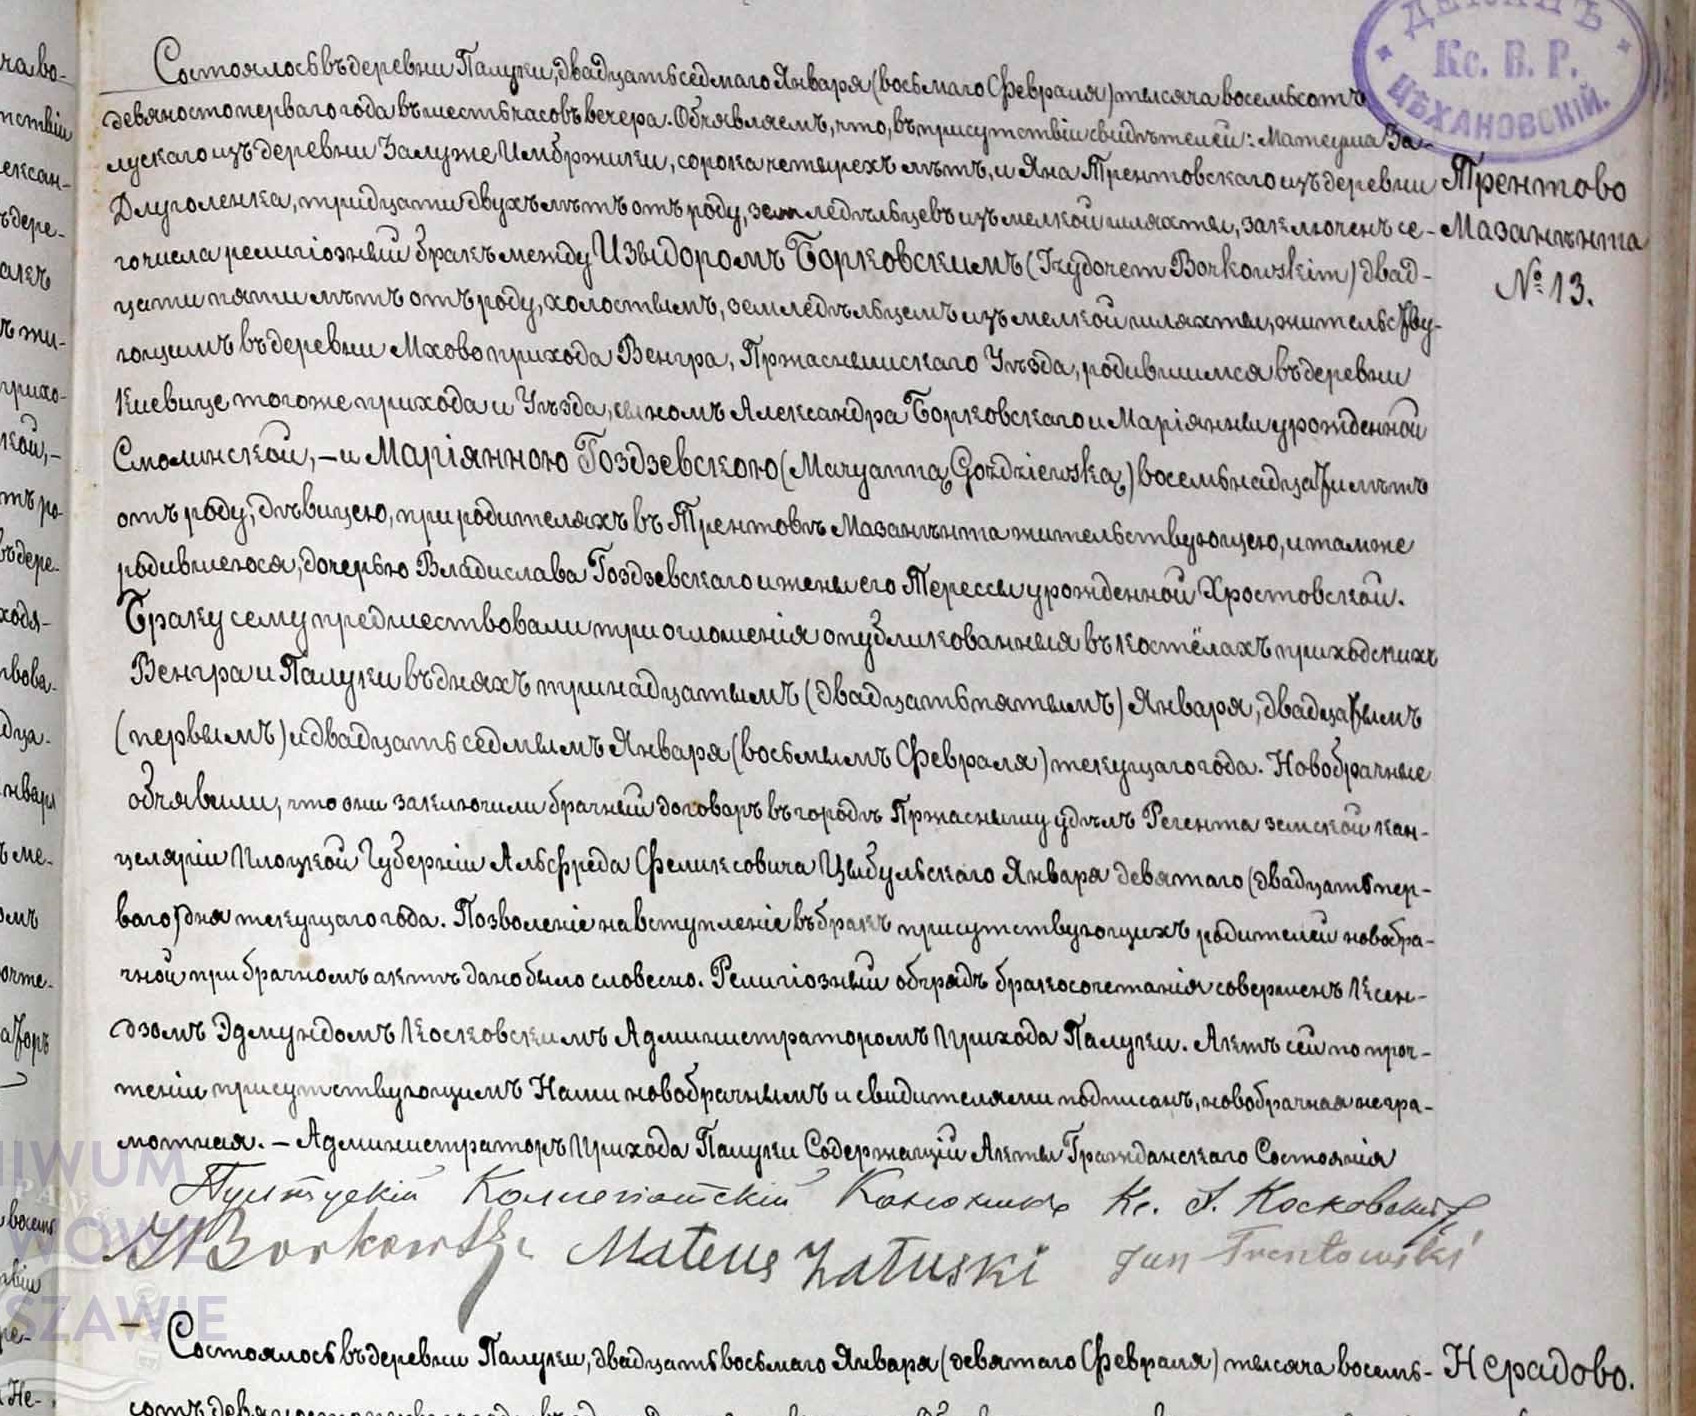 ДЕКАНЪ
Кс. В. Р.
ЦѢХАНОВСКІЙ.
Состоялось въ деревни Палуки, двадцать седмаго Января (восьмаго Февраля) тысяча восемьсотъ
девяносто перваго года въ шесть часовъ вечера. Объявляемъ, что, въ присутствіи свидѣтелей: Матеуша За-
лускаго изъ деревни Залуже Имбржики, сорока четырехъ лѣтъ, и Яна Трентовскаго изъ деревни
Длуголенка, тридцати двухъ лѣтъ отъ роду, земледѣльцевъ изъ мелкой шляхты, заключенъ се-
го числа религіозный бракъ между Изыдоромъ Борковскимъ (Izydorem Borkowskim) двад-
цати пяти лѣтъ отъ роду, холостымъ, земледѣльцемъ изъ мелкой шляхты, жительству-
ющимъ въ деревни Мхово прихода Венгра, Пржаснышскаго Уѣзда, родившимся въ деревни
Киевице того же прихода и Уѣзда, сыномъ Александра Борковскаго и Маріянны урожденной
Смолинской, – и Маріянною Гоздзевскою (Maryanną Goździewską) восемьнадцати лѣтъ
отъ роду, дѣвицею, при родителяхъ въ Трентовѣ Мазанѣнта жительствующею, и тамже
родившеюся, дочерью Владислава Гоздзевскаго и жены его Терессы урожденной Хростовской.
Браку сему предшествовали три оглошенія опубликованныя въ костёлахъ приходскихъ
Венгра и Палуки въ дняхъ тринадцатымъ (двадцать пятымъ) Января, двадцатымъ
(первымъ) и двадцать седмымъ Января (восьмымъ Февраля) текущаго года. Новобрачные
объявили, что они заключили брачный договаръ въ городѣ Пржаснышу у дѣлъ Регента земской кан-
целяріи Плоцкой Губерніи Альфреда Феликсовича Цыбульскаго Января девятаго (двадцать пер-
ваго) дня текущаго года. Позволеніе на вступленіе въ бракъ присутствующихъ родителей новобра-
чной при брачномъ актѣ дано было словесно. Религіозный обрядъ бракосочетанія совершенъ Ксен-
дзомъ Эдмундомъ Косковскимъ Администраторомъ Прихода Палуки. Актъ сей по проч-
теніи присутствующимъ Нами новобрачнымъ и свидителями подписанъ, новобрачная негра-
мотная. – Администраторъ Прихода Палуки Содержащій Акты Гражданскаго Состоянія
Пултускій Коллегіатскій Каноникъ Кс. Э. Косковскій
Borkowski Mateus Załuski Jan Trentowski
Трентово
Мазанѣнта
№ 13.
– Состоялось въ деревни Палуки, двадцать восьмаго Января (девятаго Февраля) тысяча восемь-
Нерадово.